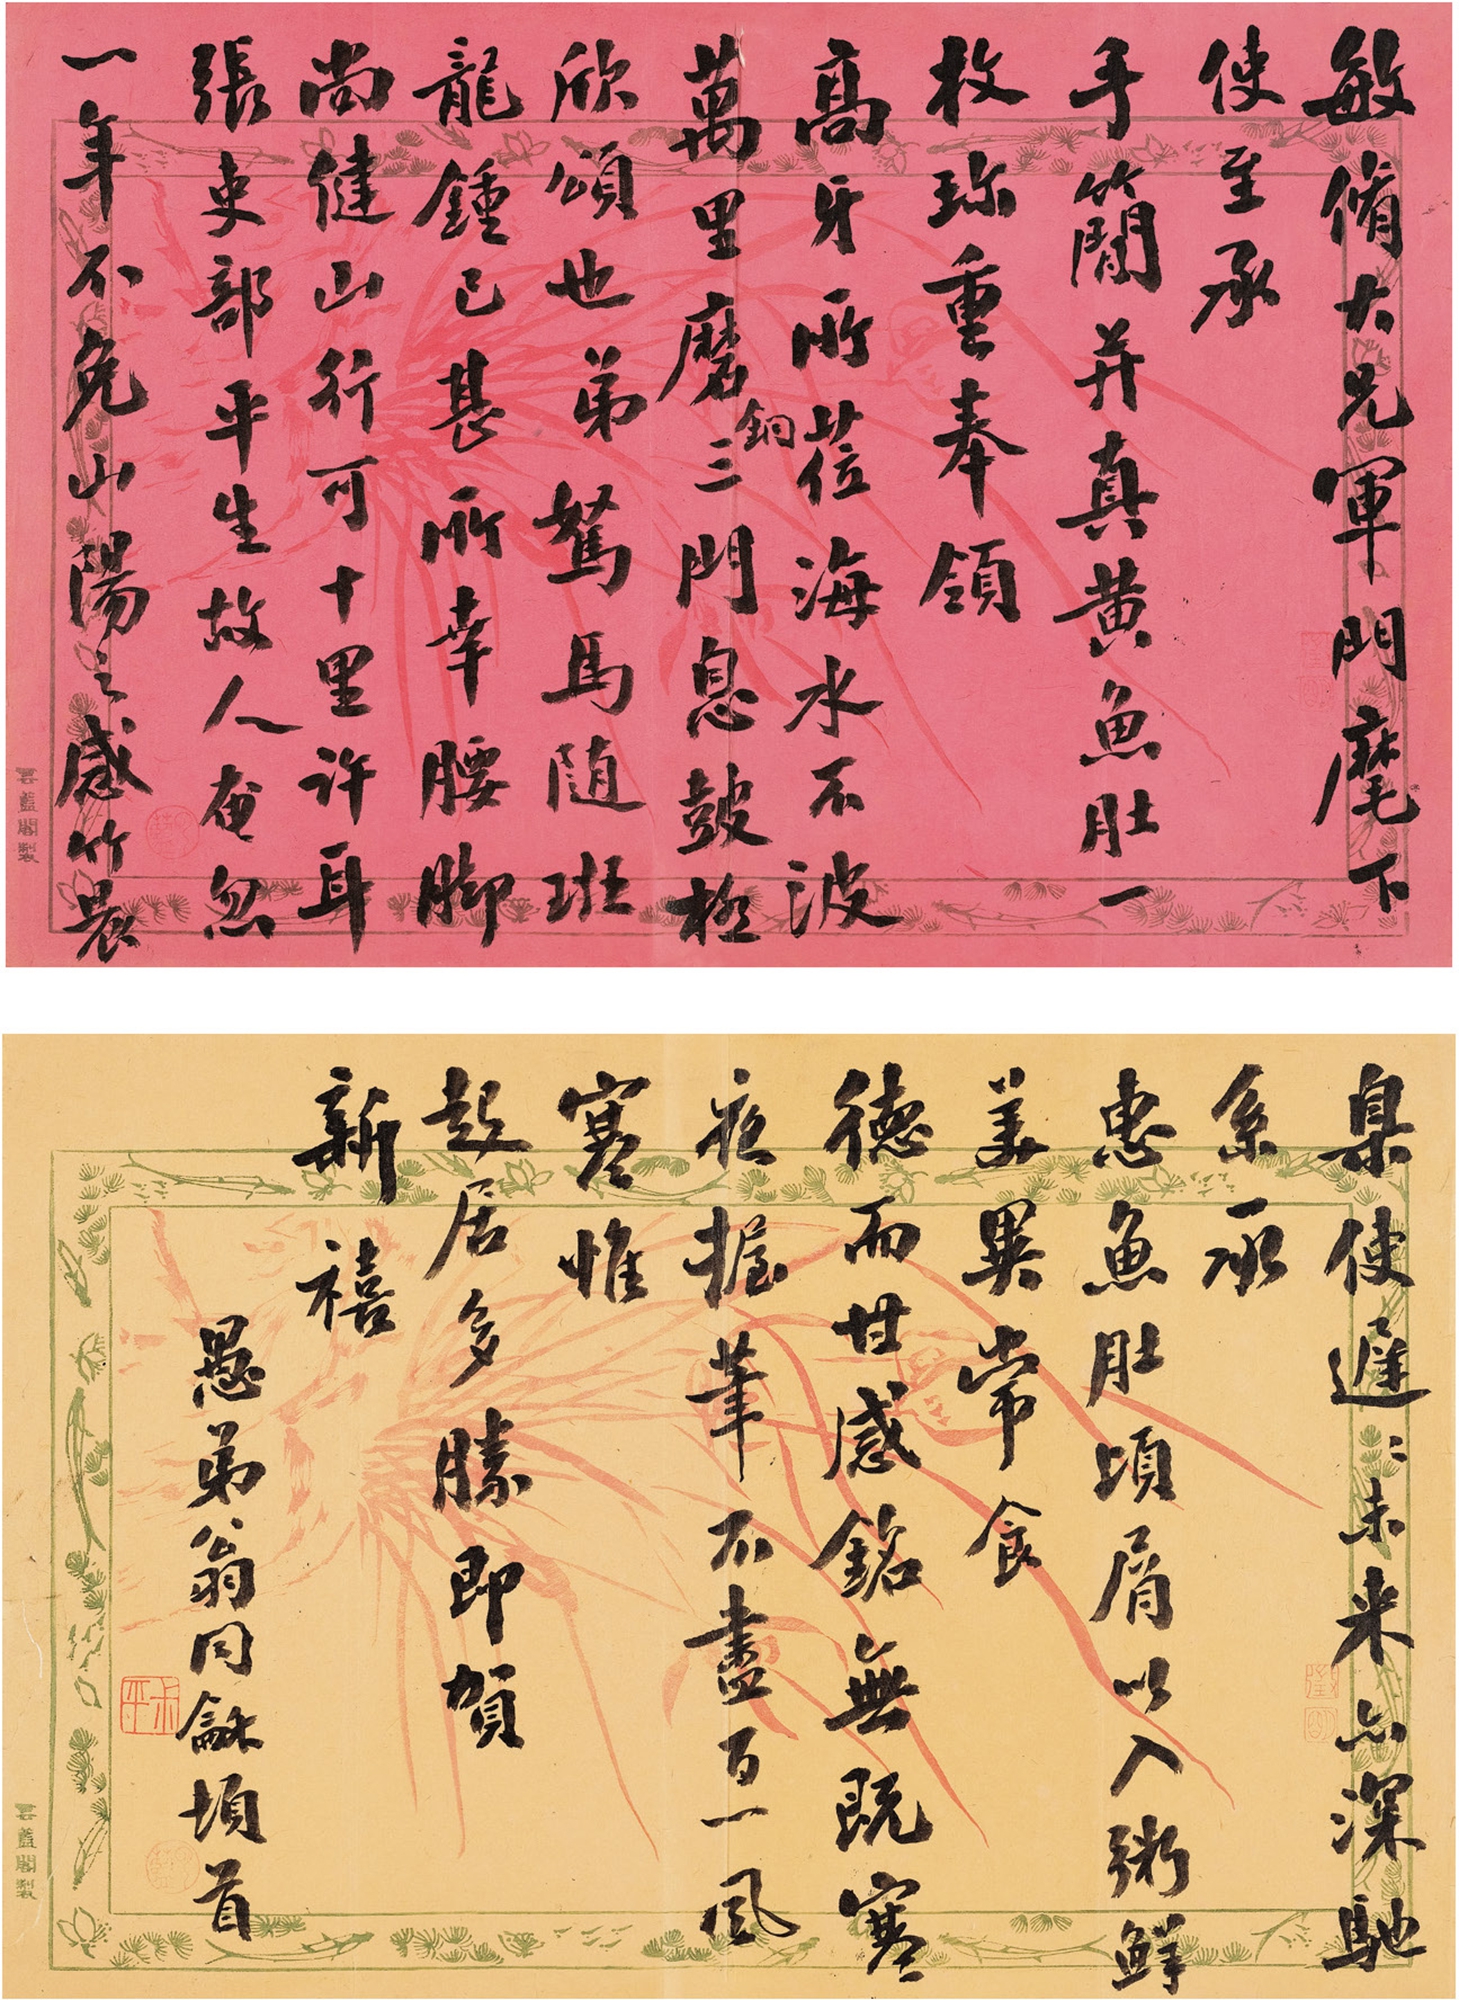 敏脩大兄軍門麾下
使至承
手簡并真黃魚肚一
枚珍重奉領
高牙所莅海水不波
萬里磨銅三門息鼓極
欣頌也弟駑馬隨班
龍鍾已甚所幸腰脚
尚健山行可十里許耳
張吏部平生故人奄忽
一年不免山陽之感竹農
雲藍閣製
臬使遲遲未來亦深馳
系承
惠魚肚頃屑以入粥鮮
美異常食
德而甘感銘無既寒
夜握筆不盡百一風
寒惟
起居多勝即賀
新禧
愚弟翁同龢頓首
叔平
雲藍閣製